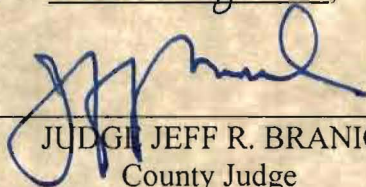 JUDGE JEFF R. BRANIC
County Judge